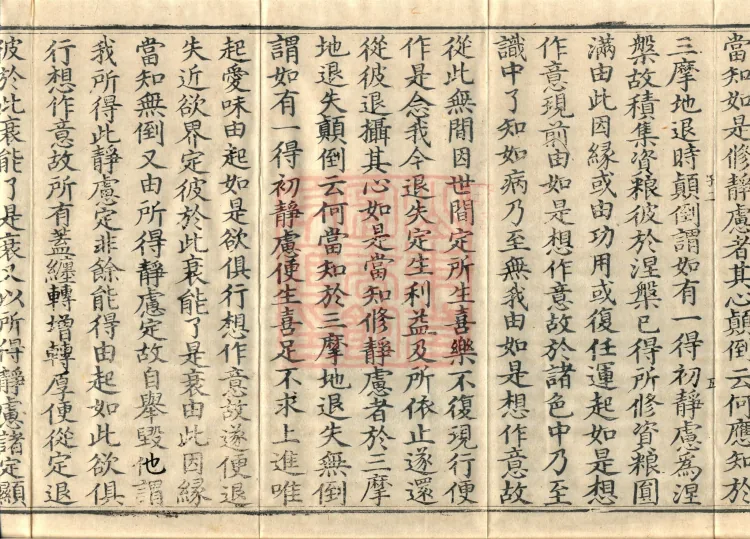 當知如是修靜慮者其心顛倒云何應知於
三摩地退時顛倒謂如有一得初靜慮爲涅
槃故積集資粮彼於涅槃已得所修資粮圓
滿由此因縁或由功用或復任運起如是想
作意現前由如是想作意故於諸色中乃至
識中了知如病乃至無我由如是想作意故
從此無間因世間定所生喜樂不復現行便
作是念我今退失定生利益及所依止遂還
從彼退攝其心如是當知修靜慮者於三摩
地退失顛倒云何當知於三摩地退失無倒
謂如有一得初靜慮便生喜足不求上進唯
起愛味由起如是欲俱行想作意故遂便退
失近欲界定彼於此衰能了是衰由此因縁
當知無倒又由所得靜慮定故自舉毀他謂
我所得此靜慮定非餘能得由起如此欲俱
行想作意故所有蓋纏轉增轉厚便從定退
彼於此衰能了是衰又以所得靜慮諸定顯